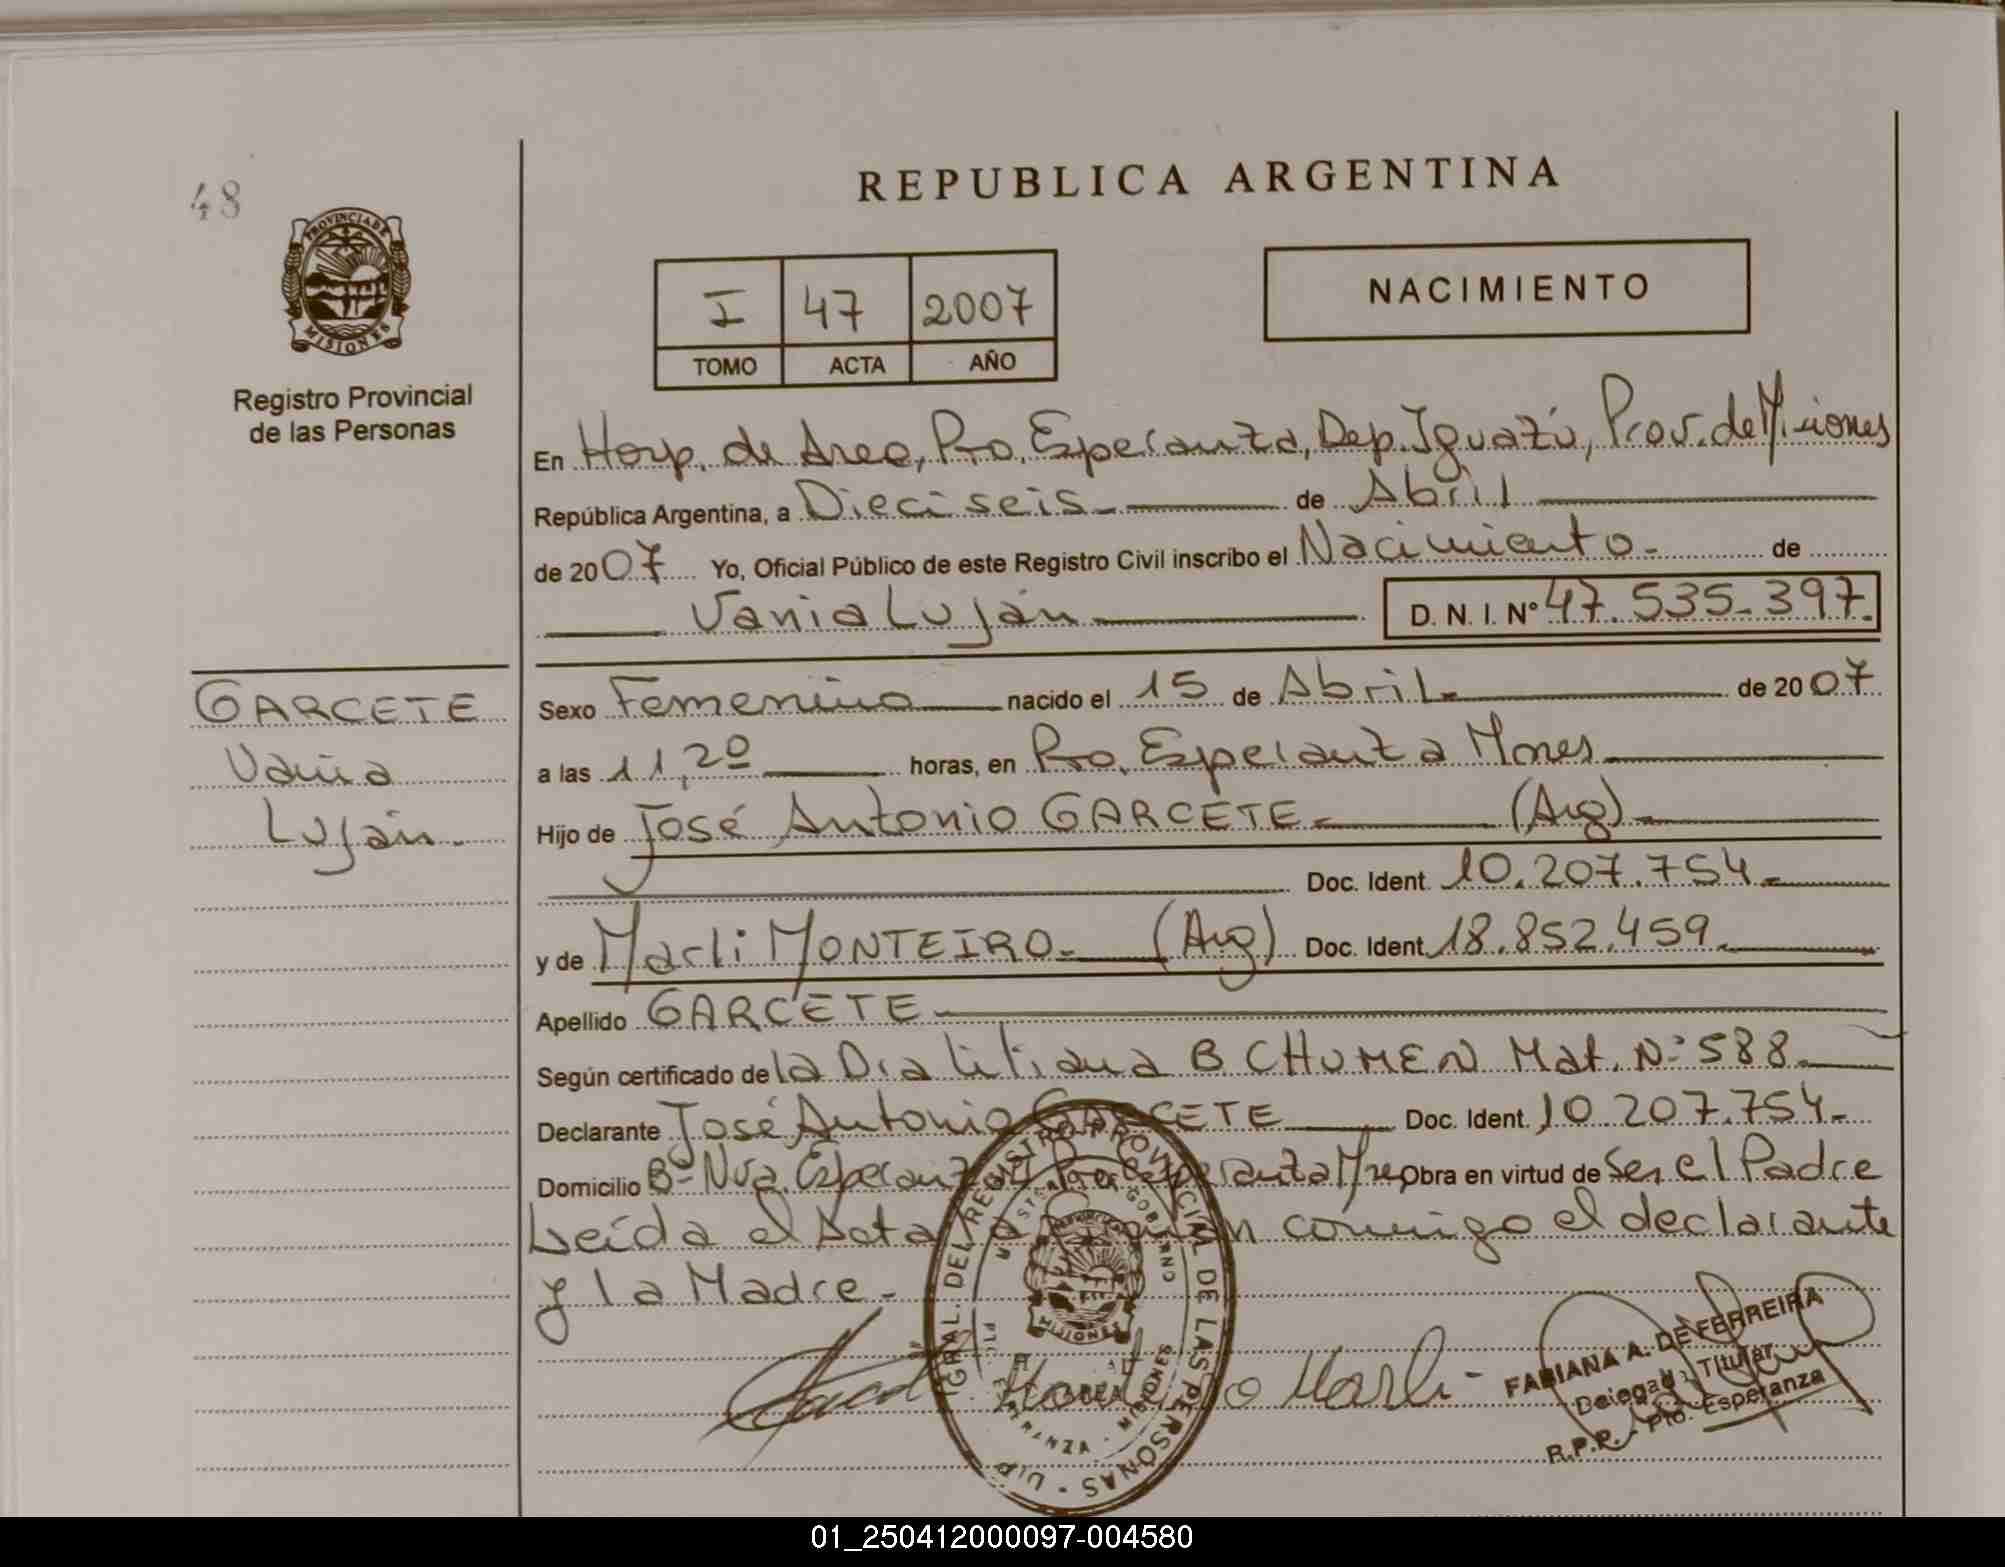 48
PROVINCIA DE
MISIONES
Registro Provincial
de las Personas
REPUBLICA ARGENTINA
I 47 2007
TOMO ACTA AÑO
NACIMIENTO
En Hosp. de Area, Pto. Esperanza, Dep. Iguazú, Prov. de Misiones
República Argentina, a Dieciseis de Abril
de 2007 Yo, Oficial Público de este Registro Civil inscribo el Nacimiento de
Vania Luján D. N. I. Nº 47.535.397.
GARCETE
Vania
Luján
Sexo Femenino nacido el 15 de Abril de 2007
a las 11,20 horas, en Pto. Esperanza Mnes
Hijo de José Antonio GARCETE (Arg)
Doc. Ident. 10.207.754
y de Marli MONTEIRO (Arg) Doc. Ident. 18.852.459
Apellido GARCETE
Según certificado de la Dra Liliana B CHUMEN Mat. Nº 588
Declarante José Antonio GARCETE Doc. Ident. 10.207.754
Domicilio Bº Nva. Esperanza Pto Esperanza Obra en virtud de Ser el Padre
Leída el Acta conmigo el declarante
y la Madre
DEL REGISTRO PROVINCIAL DE LAS PERSONAS
MISIONES
Marli
FABIANA A. DE FERREIRA
Delegada Titular
R.P.P. - Pto. Esperanza
01_250412000097-004580